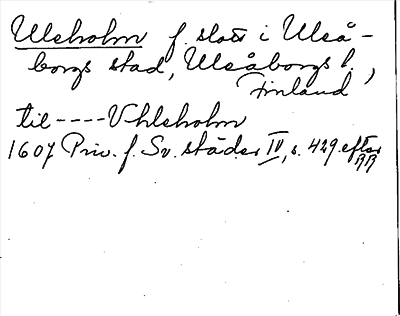 Ulsholm f. slott i Uleå-
borgs stad, Uleåborgs l.,
Finland
till ---- Vhlsholm
1607 Priv. f. Sv. städer IV, s. 429. efter
RR